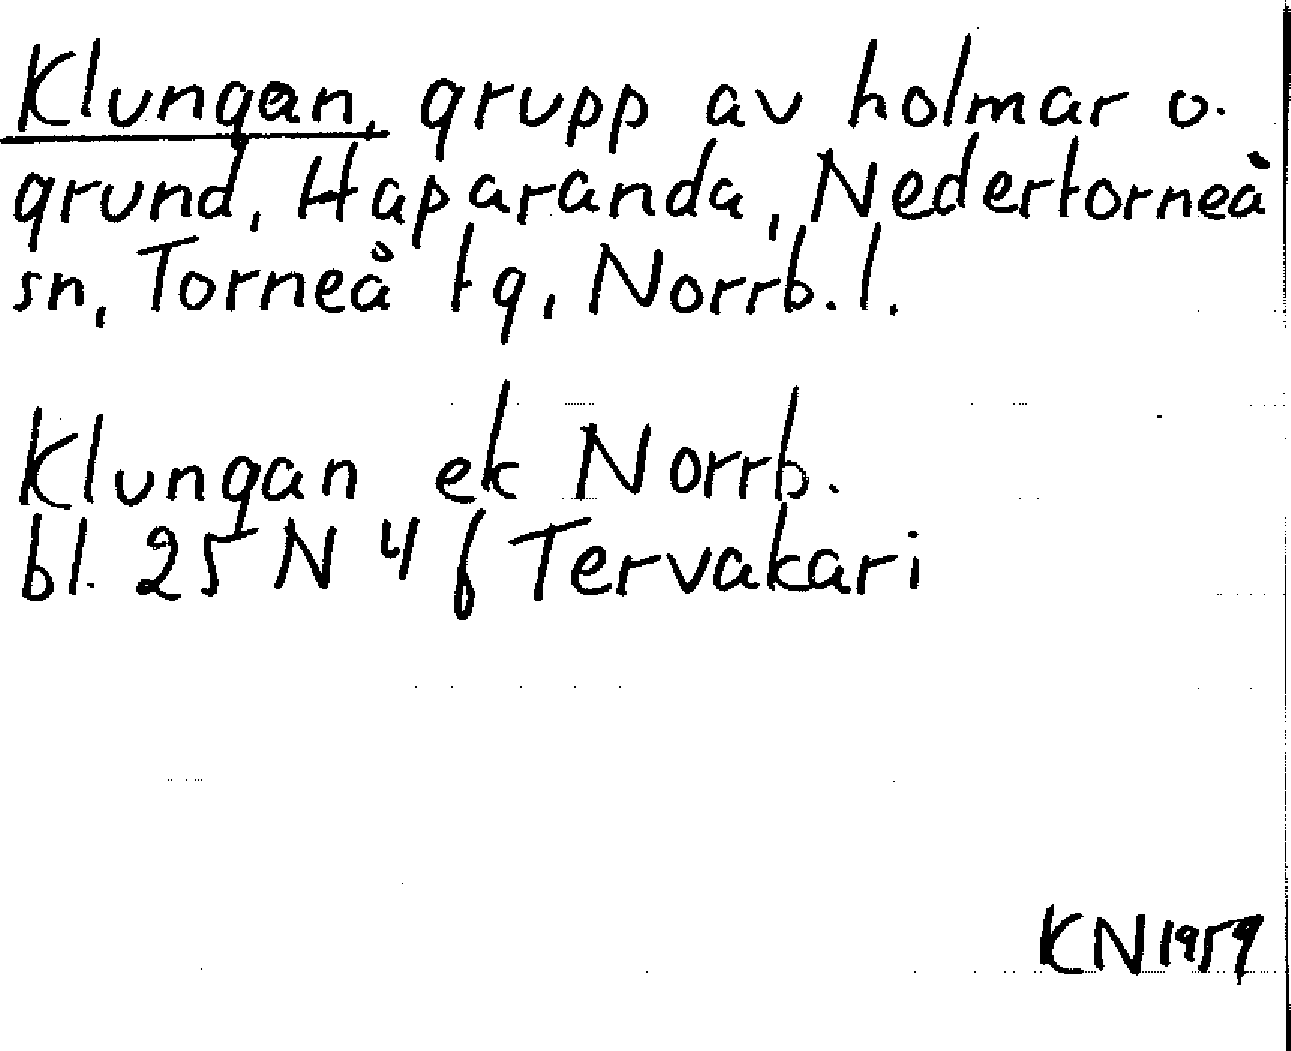 Klungan, grupp av holmar o.
grund, Haparanda, Nedertorneå
sn, Torneå tg, Norrb. l.
Klungan ek Norrb.
bl. 25 N 4 f Tervakari
KN 1959